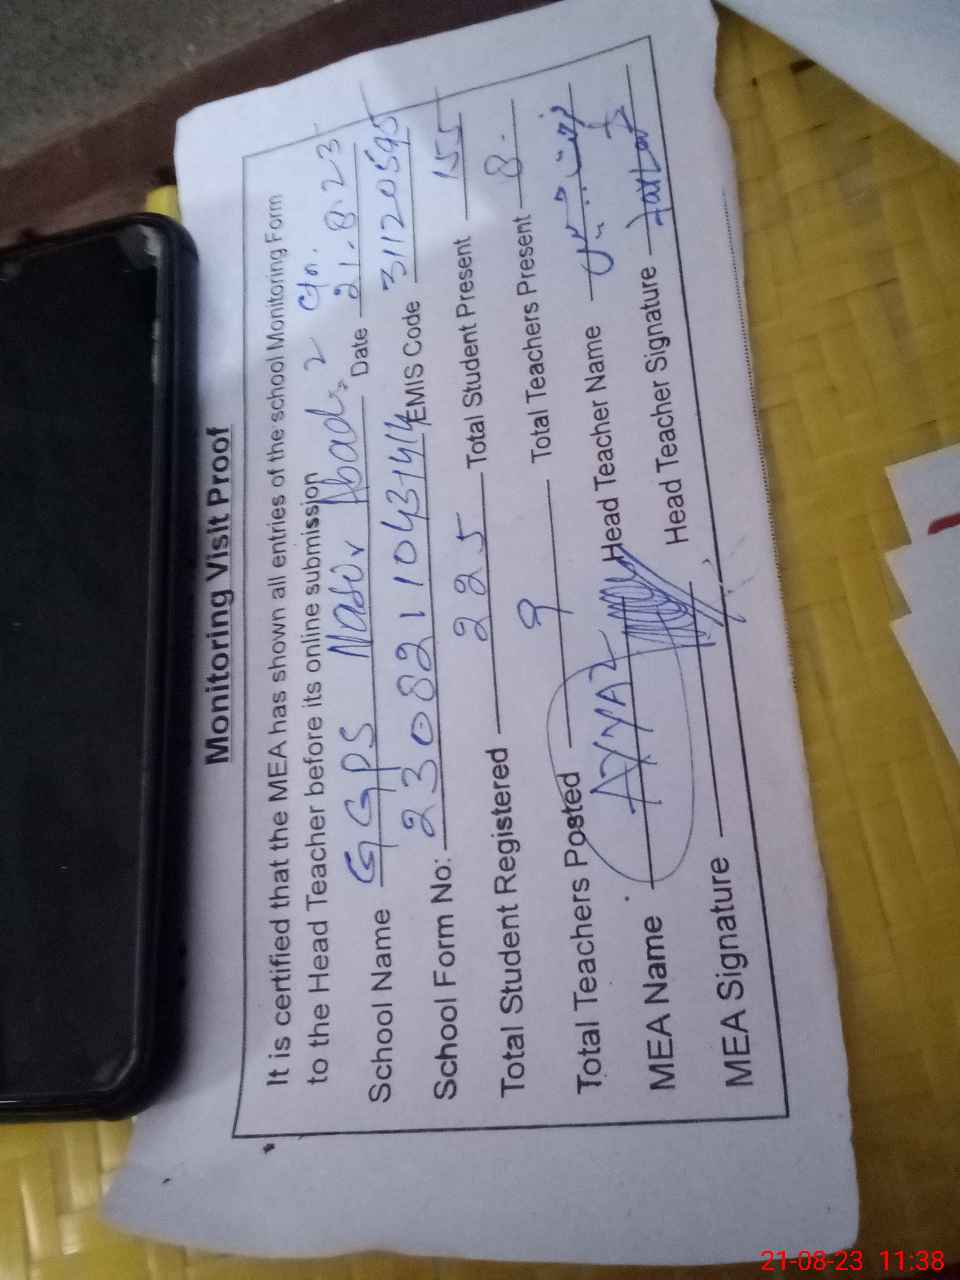 Monitoring Visit Proof
It is certified that the MEA has shown all entries of the school Monitoring Form
to the Head Teacher before its online submission
School Name GGPS Nasir Abad 2 Date 21.8.23
School Form No: 23082110431414 EMIS Code 31120595
Total Student Registered 225 Total Student Present 155
Total Teachers Posted 9 Total Teachers Present 8.
MEA Name AYYAZ Head Teacher Name
MEA Signature Head Teacher Signature
21-08-23 11:38